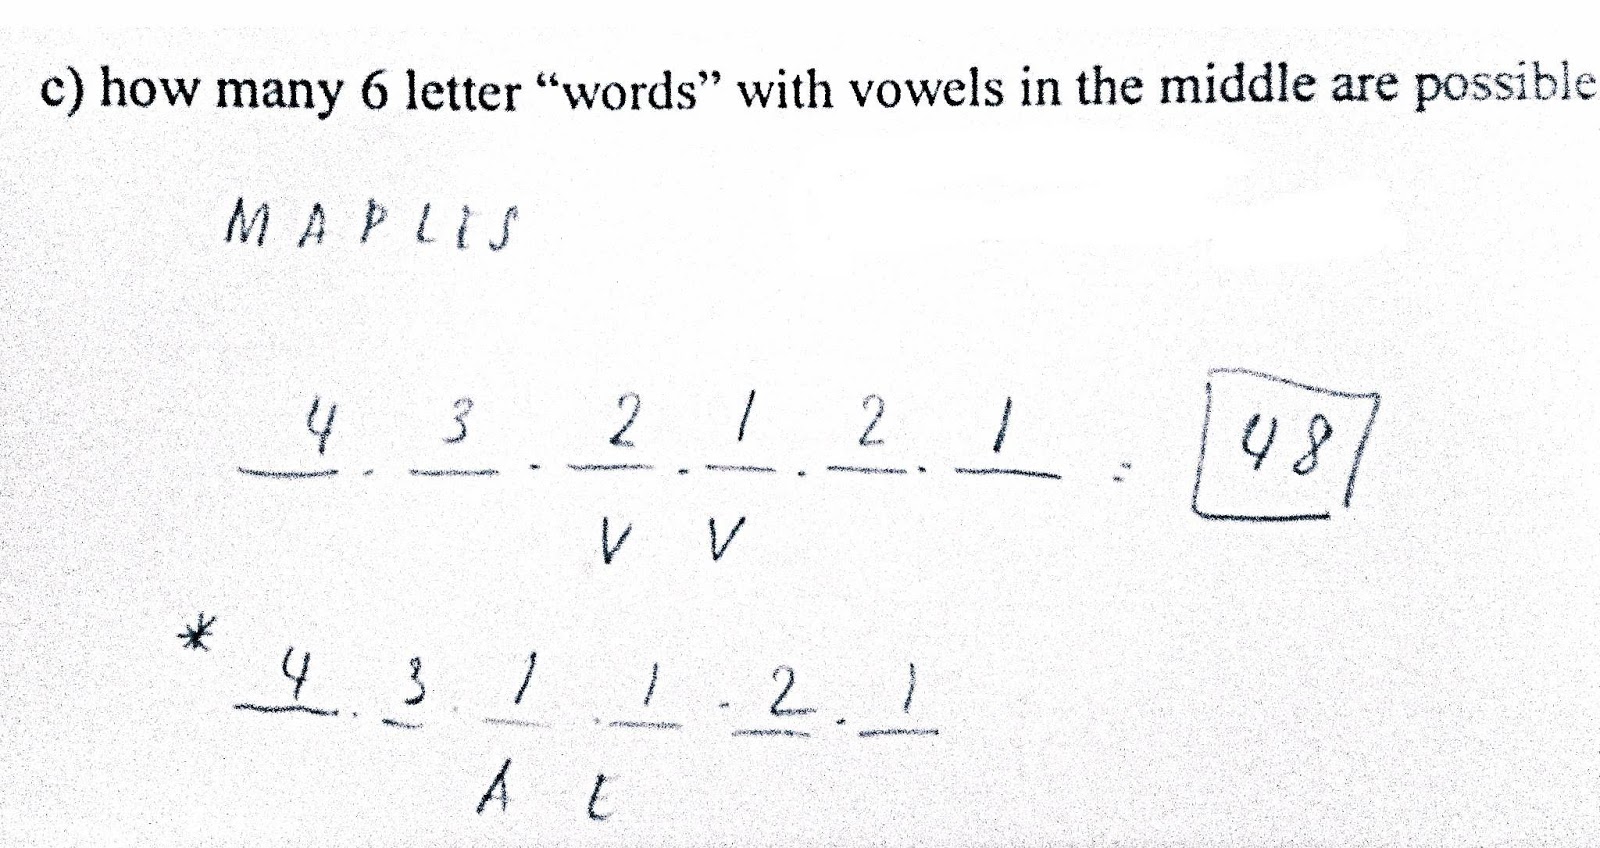 c) how many 6 letter “words” with vowels in the middle are possible
M A P L E S
4 · 3 · 2 · 1 · 2 · 1 = 48
V V
* 4 · 3 · 1 · 1 · 2 · 1
A E